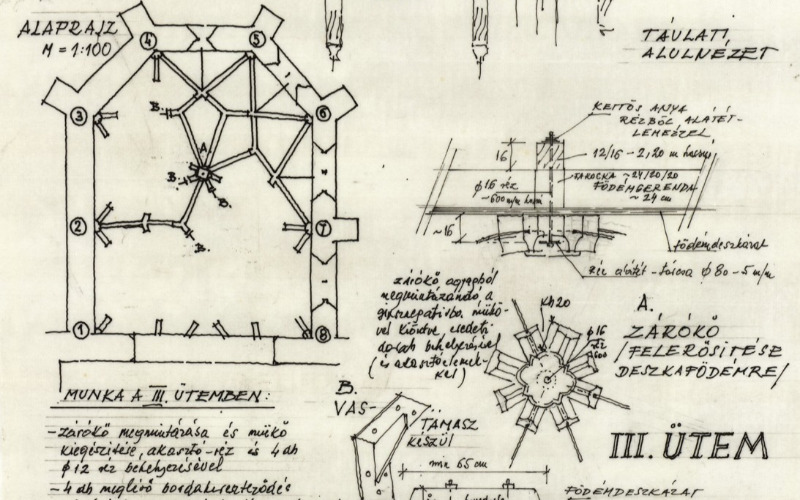 ALAPRAJZ
M = 1:100
TÁVLATI
ALULNÉZET
4
5
3
6
2
7
1
8
A
B.
B.
B.
B.
KETTŐS ANYA
RÉZBŐL ALÁTÉT-
LEMEZZEL
16
12/16 - 2,20 m
FAKOCKA ~24/20/20
FÖDÉMGERENDA
~ 24 cm
φ16 réz
~600 m/m
~16
födémdeszkázat
réz alátét-tárcsa φ 80 - 5 m/m
zárókő agyagból
megmintázandó a
műkő-
eredeti
darab behelyezésével
(és akasztóelemek-
kel)
kb 20
φ16
réz
A.
ZÁRÓKŐ
/FELERŐSÍTÉSE
DESZKAFÖDÉMRE/
III. ÜTEM
MUNKA A III. ÜTEMBEN:
- zárókő megmintázása és műkő
kiegészítése, akasztó-réz és 4 db
φ 12 réz behelyezésével
- 4 db meglévő
B.
VAS-
TÁMASZ
készül
min 65 cm
FÖDÉMDESZKÁZAT